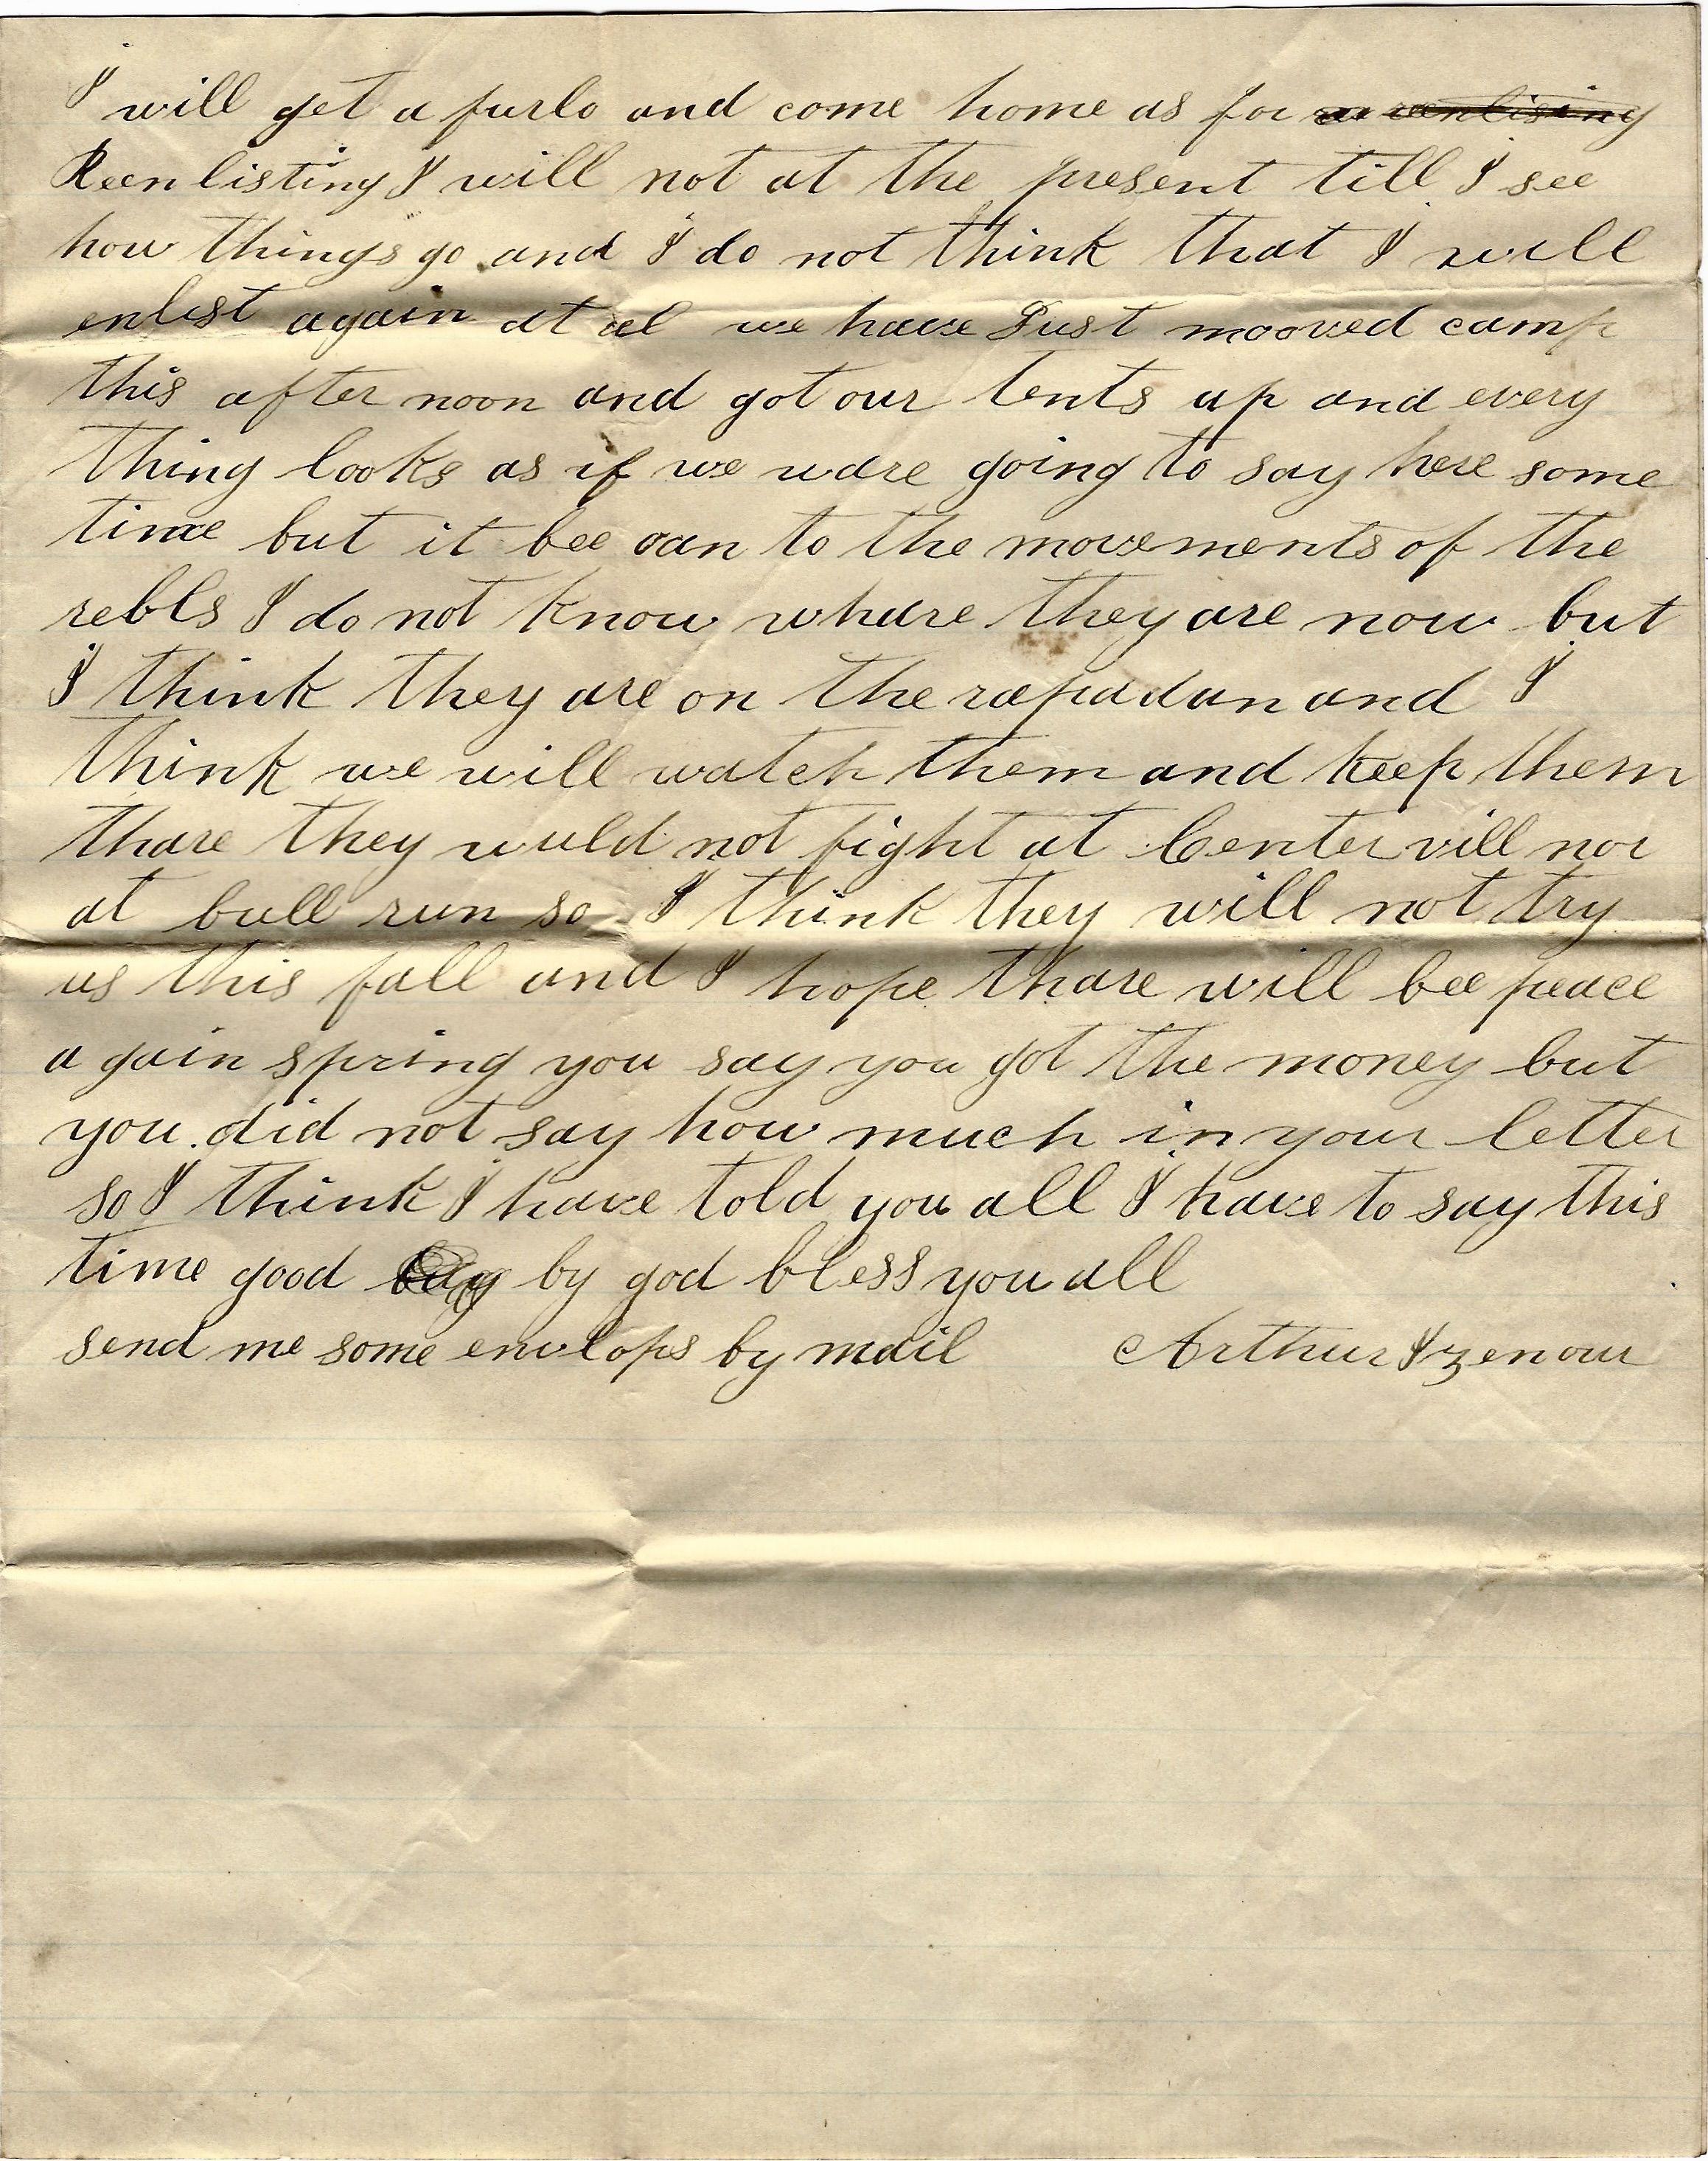 I will get a furlo and come home as for
Reenlisting I will not at the present till I see
how things go and I do not think that I will
enlist again at al we have Just mooved camp
this after noon and got our tents up and every
thing looks as if we ware going to say here some
time but it bee to the movements of the
rebls I do not know whare they are now but
I think they are on the rapadan and I
think we will watch them and keep them
thare they wuld not fight at Center vill nor
at bull run so I think they will not try
us this fall and I hope thare will bee peace
a gain spring you say you got the money but
you did not say how much in your letter
so I think I have told you all I have to say this
time good by god bless you all
send me some envlops by mail Arthur Izenour